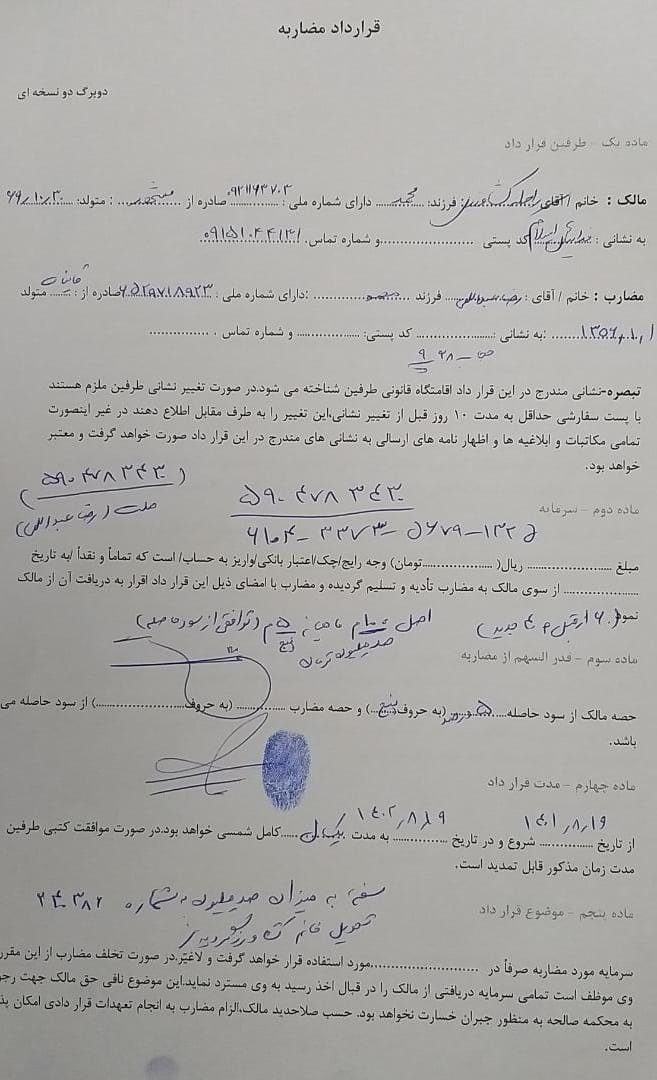 قرارداد مضاربه
دوبرگ دو نسخه ای
ماده یک - طرفین قرار داد
مالک : خانم / آقای : فرزند: مجید دارای شماره ملی : صادره از : متولد: ۶۹/۱۰/۳۰
به نشانی : کد پستی .......... و شماره تماس. ۰۹۱۵۱۰۴۴۱۳۱
مضارب : خانم / آقای : رضا عبداللهی فرزند .......... :دارای شماره ملی : ۶۵۲۹۷۱۸۹۲۳ صادره از : قاینات متولد
۱۳۵۶/۰۱/۰۱ :به نشانی :.......... کد پستی: .......... و شماره تماس . ..........
تبصره-نشانی مندرج در این قرار داد اقامتگاه قانونی طرفین شناخته می شود.در صورت تغییر نشانی طرفین ملزم هستند
با پست سفارشی حداقل به مدت ۱۰ روز قبل از تغییر نشانی،این تغییر را به طرف مقابل اطلاع دهند در غیر اینصورت
تمامی مکاتبات و ابلاغیه ها و اظهار نامه های ارسالی به نشانی های مندرج در این قرار داد صورت خواهد گرفت و معتبر
خواهد بود.
(۵۹۰۴۷۸۳۴۳۰) ۵۹۰۴۷۸۳۴۳۰
ماده دوم - سرمایه
ملت (رضا عبداللهی) ۶۱۰۴-۳۳۷۳-۵۶۷۹-۱۳۲۵
مبلغ .......... ریال( ..........تومان) وجه رایج/چک/اعتبار بانکی/واریز به حساب/ است که تماماً و نقداً /به تاریخ
.......... از سوی مالک به مضارب تأدیه و تسلیم گردیده و مضارب با امضای ذیل این قرار داد اقرار به دریافت آن از مالک
نمود.
اصل ۱۰۰م ماهیانه ۵م (توافقی از سود حاصله)
صد میلیون تومان پنج
ماده سوم - قدر السهم از مضاربه
حصه مالک از سود حاصله ۵ درصد (به حروف پنج) و حصه مضارب .......... (به حروف..........) از سود حاصله می
باشد.
ماده چهارم - مدت قرار داد
۱۴۰۱/۸/۱۹ ۱۴۰۲/۸/۱۹
از تاریخ .......... شروع و در تاریخ .......... به مدت یکسال کامل شمسی خواهد بود.در صورت موافقت کتبی طرفین
مدت زمان مذکور قابل تمدید است.
سفته به میزان صد میلیون به شماره ۲۴۰۳۸۲
ماده پنجم - موضوع قرار داد
تحویل خانم کشاورز گردید
سرمایه مورد مضاربه صرفاً در ..........مورد استفاده قرار خواهد گرفت و لاغیر.در صورت تخلف مضارب از این مقرر
وی موظف است تمامی سرمایه دریافتی از مالک را در قبال اخذ رسید به وی مسترد نماید.این موضوع نافی حق مالک جهت رجو
به محکمه صالحه به منظور جبران خسارت نخواهد بود. حسب صلاحدید مالک،الزام مضارب به انجام تعهدات قرار دادی امکان پذ
است.